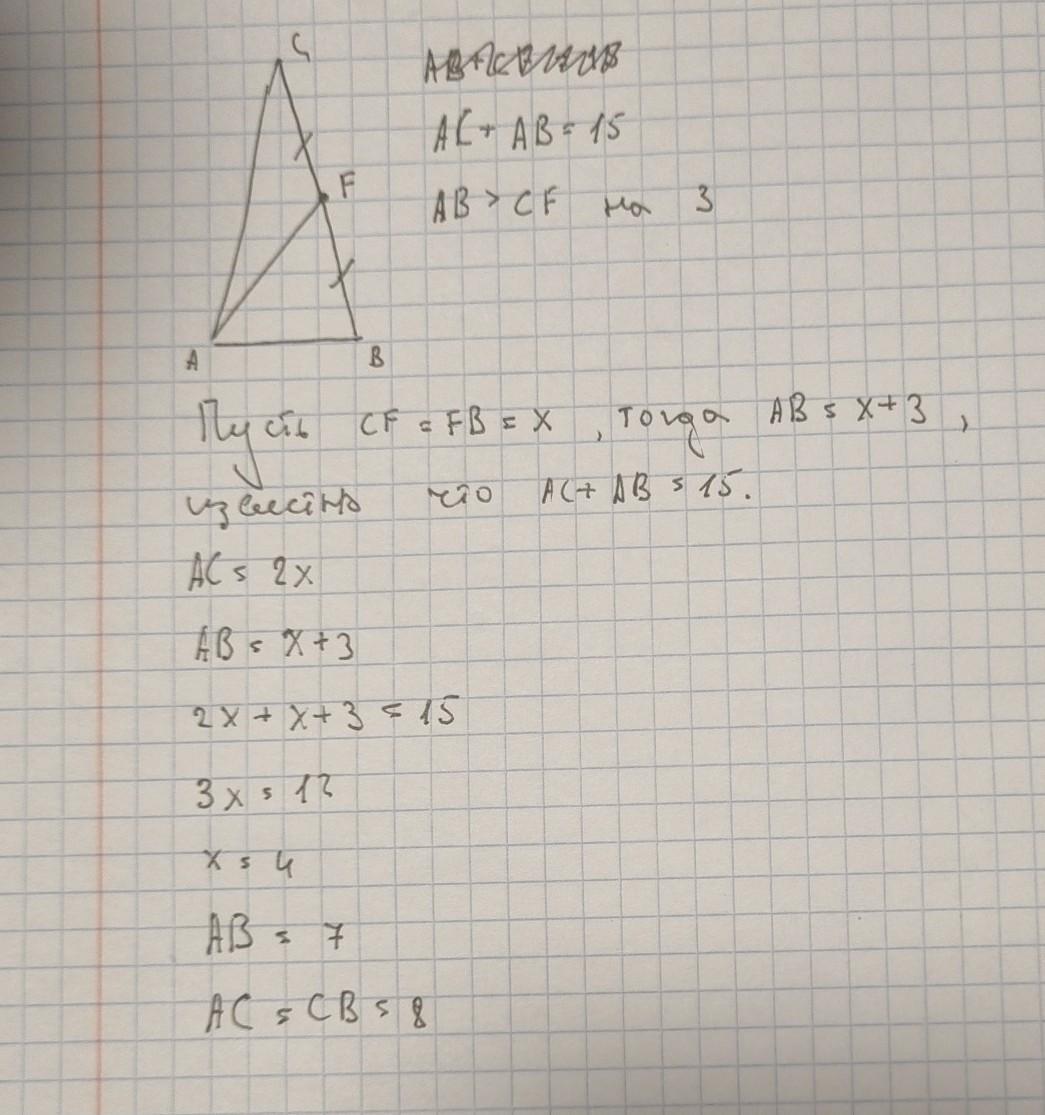 C
AC + AB = 15
F
AB > CF на 3
A
B
Пусть CF = FB = x , тогда AB = x + 3 ,
известно что AC + AB = 15.
AC = 2x
AB = x + 3
2x + x + 3 = 15
3x = 12
x = 4
AB = 7
AC = CB = 8